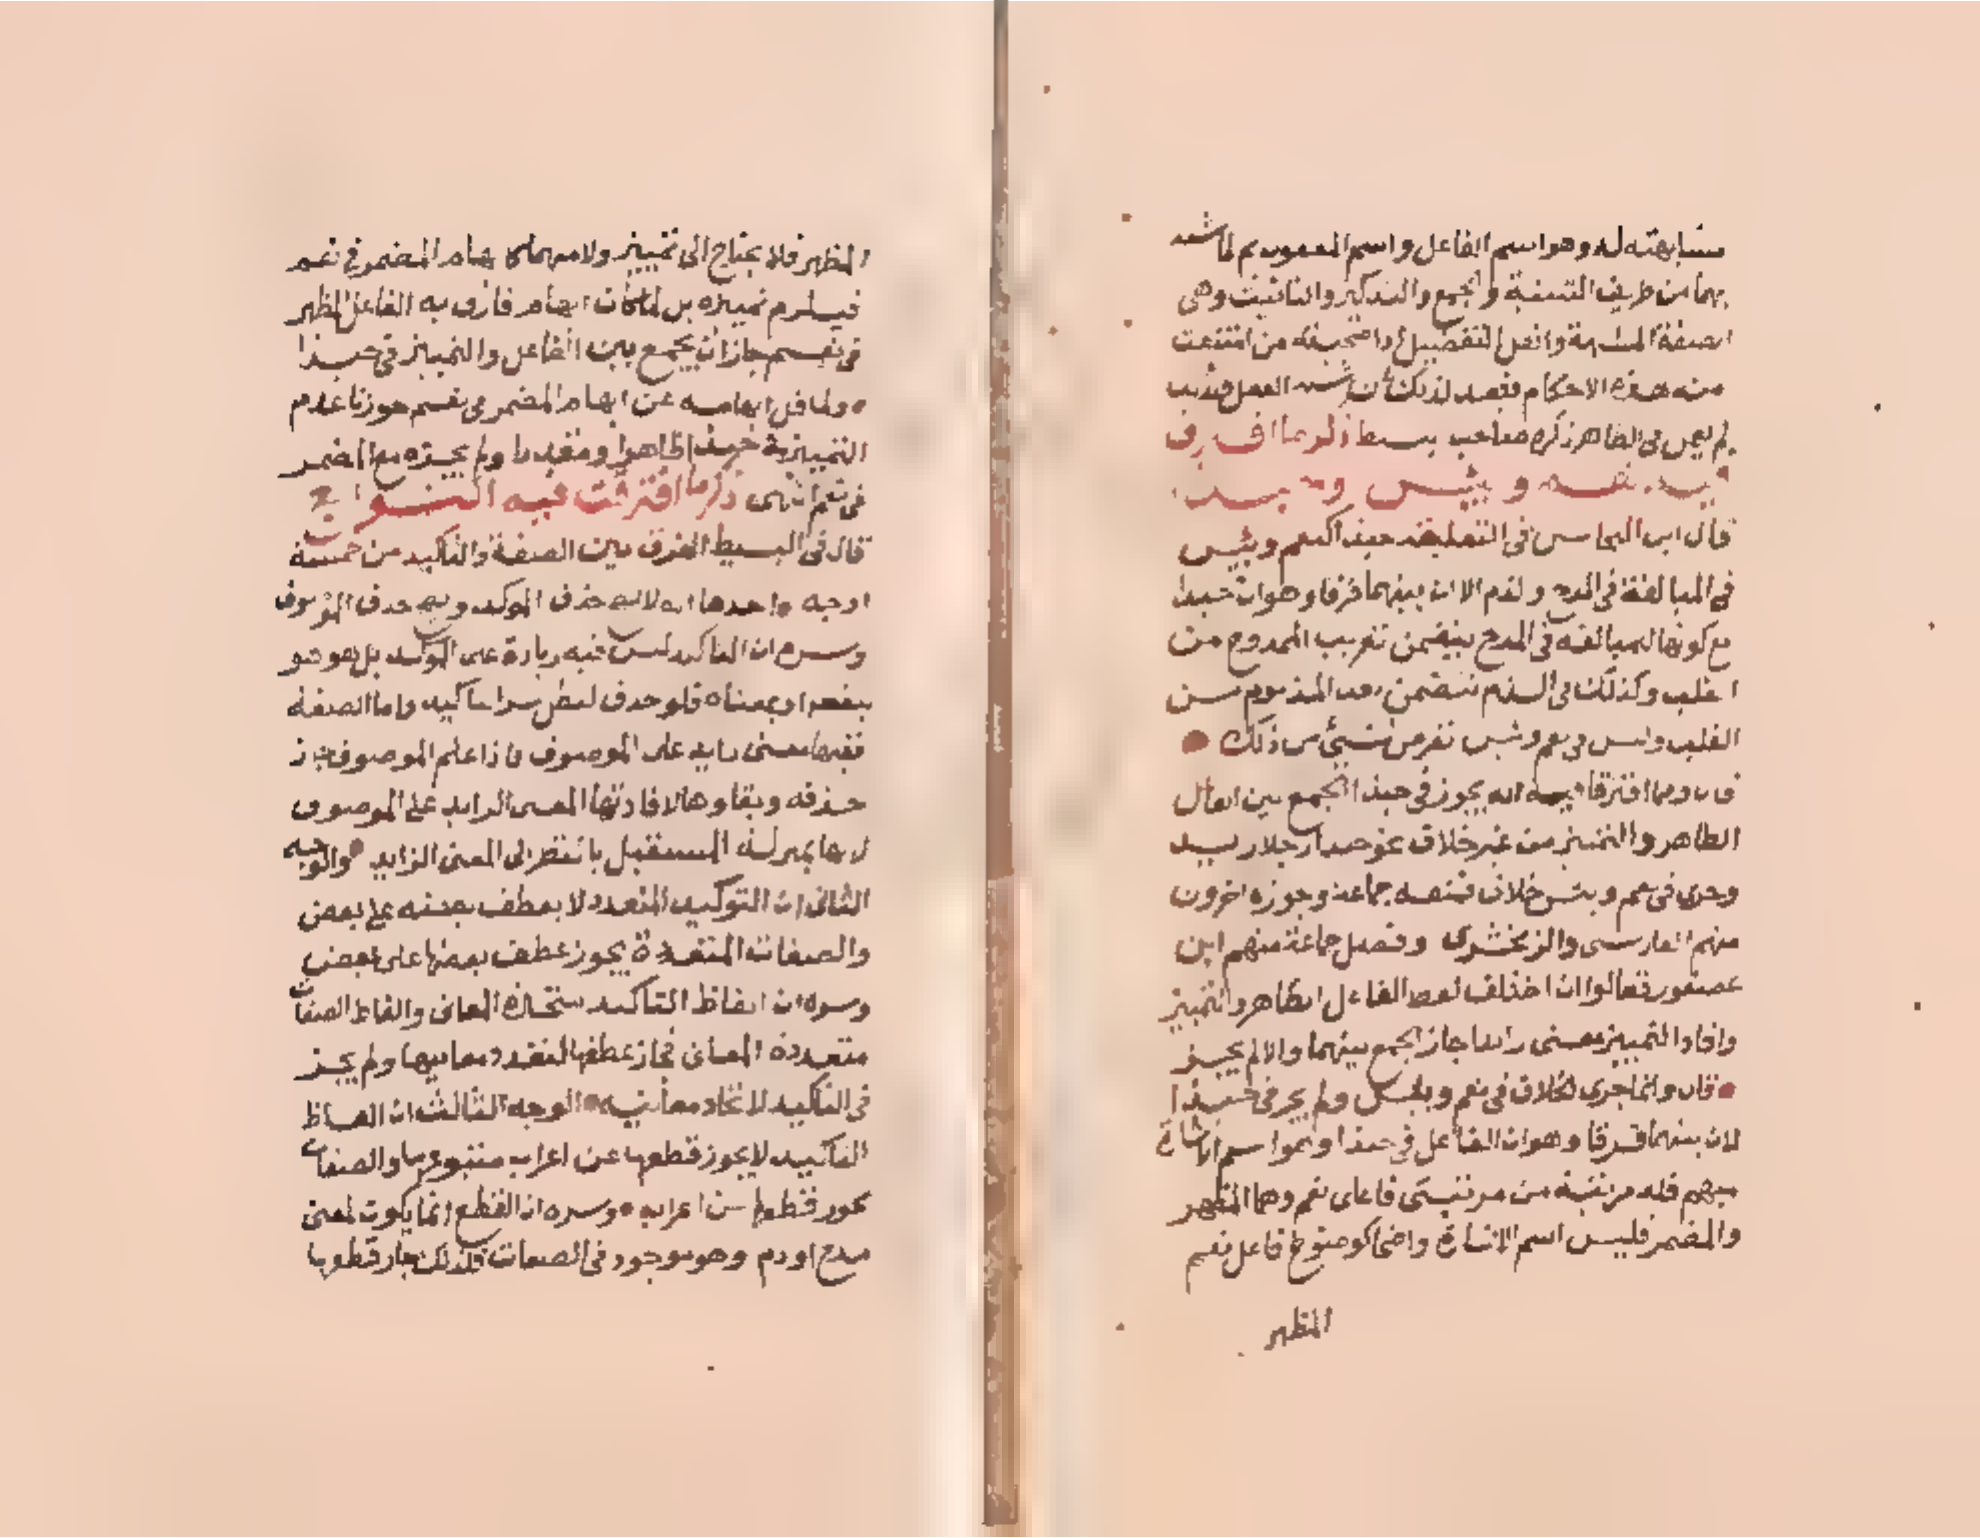 مشابهته له وهو اسم الفاعل واسم المفعول ثم لما شبه
بهما من طريق التثنية والجمع والتذكير والتانيث وهى
الصفة المشبهة وافعل التفضيل اذا صحبته من امتنعت
منه هذه الاحكام فبعد لذلك
فى الظاهر ذكره صاحب البسيط ذكر ما افترق
فيه نعم وبئس وحبذا
قال ابن النحاس فى التعليقة حبذا كنعم وبئس
فى المبالغة فى المدح والذم الا ان بينهما فرقا وهو ان حبذا
مع كونها للمبالغة فى المدح يتضمن تقريب الممدوح من
القلب وكذلك فى الذم تتضمن بعد المذموم من
القلب وليس فى نعم وبئس تعرض لشئ من ذلك
قال ومما افترقا فيه انه يجوز فى حبذا الجمع بين الفاعل
الظاهر والتمييز من غير خلاف نحو حبذا رجلا زيد
وجرى فى نعم وبئس خلاف فمنعه جماعة وجوزه اخرون
منهم الفارسى والزمخشرى وفصل جماعة منهم ابن
عصفور فقالوا ان اختلف لفظ الفاعل الظاهر والتمييز
وافاد التمييز معنى زايدا جاز الجمع بينهما والا لم يجز
قال وانما جرى الخلاف فى نعم وبئس ولم يجر فى حبذا
لان بينهما فرقا وهو ان الفاعل فى حبذا وهو اسم الاشارة
مبهم فله مرتبة من مرتبتى فاعلى نعم وهما المظهر
والمضمر فليس اسم الاشارة واضحا كوضوح فاعل نعم
المظهر
المظهر فلا يحتاج الى تمييز ولا مبهما كابهام المضمر فى نعم
فيلزم تمييزه بل لما كان ابهام فارق به الفاعل المظهر
فى نعم جاز ان يجمع بين الفاعل والتمييز فى حبذا
ولما قل ابهامه عن ابهام المضمر فى نعم جوزنا عدم
التمييز فى حبذا ظاهرا ومقدرا ولم يجزه مع المضمر
فى نعم انتهى ذكر ما افترقت فيه التوابع
قال فى البسيط الفرق بين الصفة والتاكيد من خمسة
اوجه احدها انه لا يجوز حذف الموكد ويجوز حذف الموصوف
وسره ان التاكيد ليس فيه زيادة على الموكد بل هو هو
بلفظه او بمعناه فلو حذف لبطل سر التاكيد واما الصفة
ففيها معنى زايد على الموصوف فاذا علم الموصوف جاز
حذفه وبقاوها لافادتها المعنى الزايد على الموصوف
لانها بمنزلة المستقبل بالنظر الى المعنى الزايد والوجه
الثانى ان التوكيد المتعدد لا يعطف بعضه على بعض
والصفات المتعددة يجوز عطف بعضها على بعض
وسره ان الفاظ التاكيد متحدة المعانى والفاظ الصفات
متعددة المعانى فجاز عطفها لتعدد معانيها ولم يجز
فى التاكيد لاتحاد معانيه الوجه الثالث ان الفاظ
التاكيد لا يجوز قطعها عن اعراب متبوعها والصفات
يجوز قطعها عن اعرابه وسره ان القطع انما يكون لمعنى
مدح او ذم وهو موجود فى الصفات فلذلك جاز قطعها